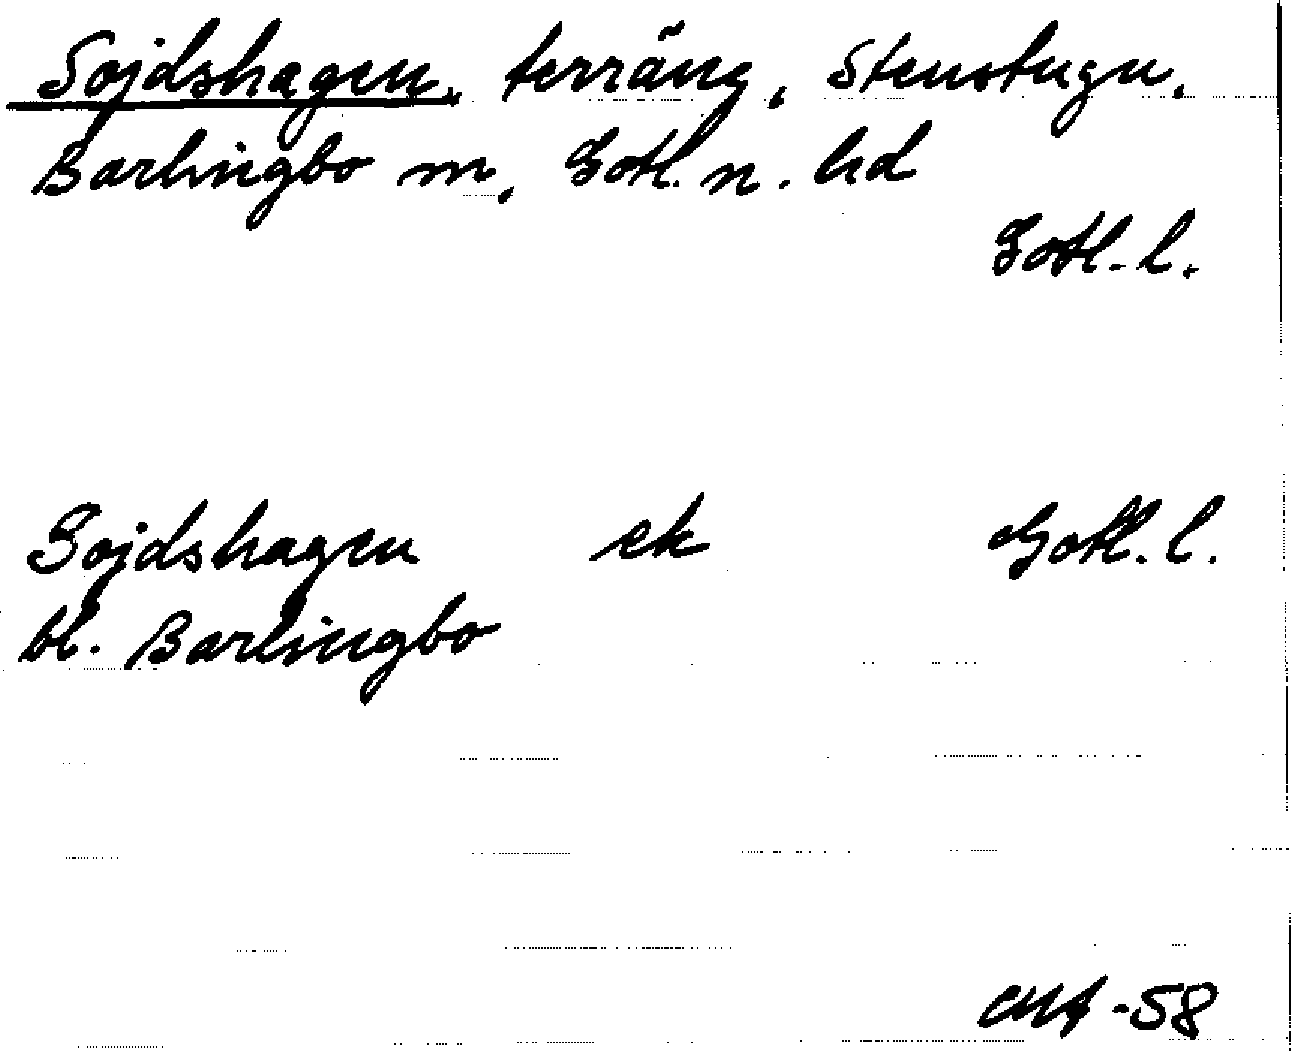 Sojdshagen, terräng, Stenstugu,
Barlingbo sn, Gotl. n. hd
Gotl. l.
Sojdshagen ek Gotl. l.
bl. Barlingbo
-58